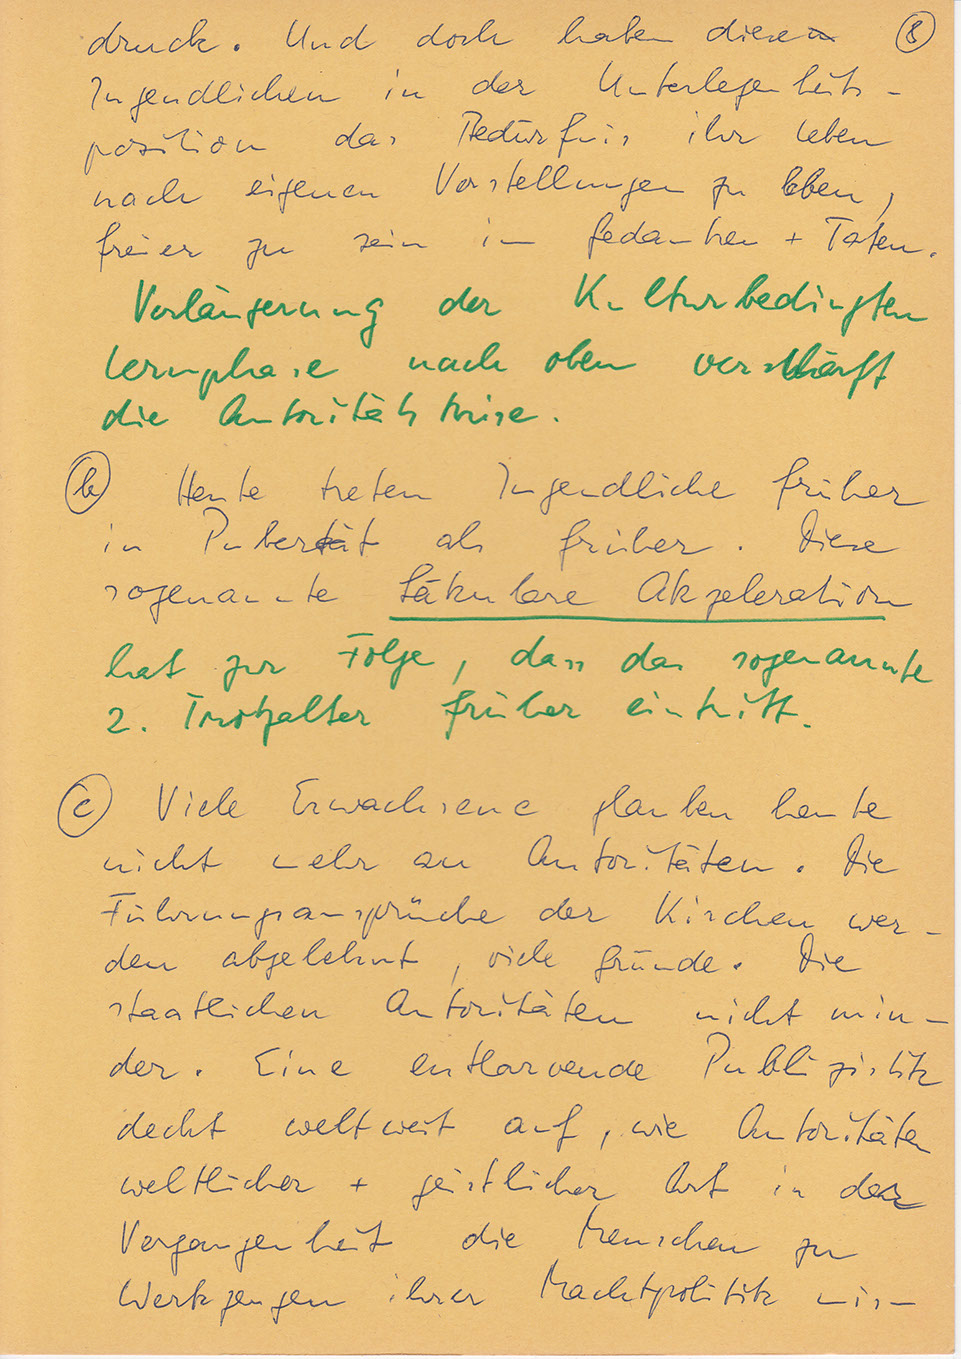 druck. Und doch haben diese 8
Jugendlichen in der Unterlegenheits-
position das Bedürfnis ihr Leben
nach eigenen Vorstellungen zu leben,
freier zu sein in Gedanken + Taten.
Verlängerung der Kulturbedingten
Lernphase nach oben verschärft
die Autoritätskrise.
b Heute treten Jugendliche früher
in Pubertät als früher. Diese
sogenannte Säkulare Akzeleration
hat zur Folge, dass das sogenannte
2. Trotzalter früher eintritt.
c Viele Erwachsene glauben heute
nicht mehr an Autoritäten. Die
Führungsansprüche der Kirchen wer-
den abgelehnt, viele Gründe. Die
staatlichen Autoritäten nicht min-
der. Eine entlarvende Publizistik
deckt weltweit auf, wie Autoritäten
weltlicher + geistlicher Art in der
Vergangenheit die Menschen zu
Werkzeugen ihrer Machtpolitik mis-